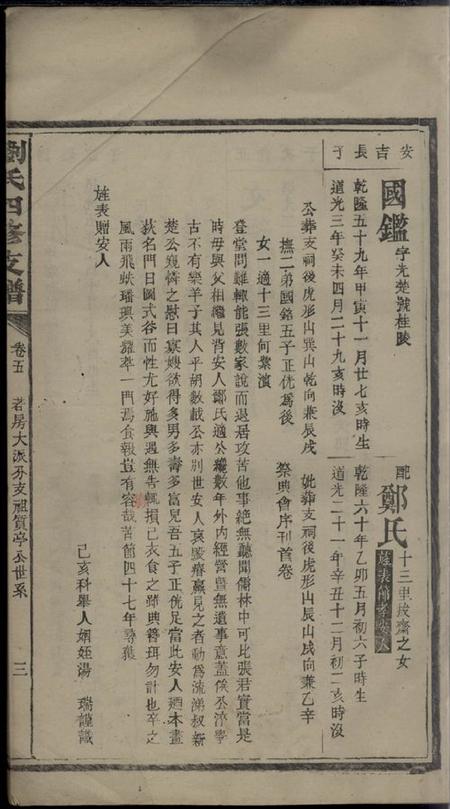 安吉長子
國鑑字光楚號桂陵
配鄭氏十三里拔齋之女
旌表節孝安人
乾隆五十九年甲寅十一月廿七亥時生
乾隆六十年乙卯五月初六子時生
道光三年癸未四月二十九亥時沒
道光二十一年辛丑十二月初二亥時沒
公葬支祠後虎形山巽山乾向兼辰戌
妣葬支祠後虎形山辰山戌向兼乙辛
撫二弟國銘五子正优為後
祭典會序刊首卷
女一適十三里何業濱
登堂問難輒能張數家說而退居攻苦他事絕無聽聞儒林中可比張君實當是
時毋與父相繼見背安人鄭氏適公纔數年外內經營曾無遺事意蓋俟公濟學
古不有樂羊子其人乎胡數載公亦別世安人哀毀瘠羸見之者動為流涕叔新
楚公幾憐之慰曰寡嫂欲得多男多壽多富兒吾五子正优足當此安人迺本畫
荻名門日圖式谷而性尤好施與遇無告輒損己衣食之師典簪珥勿計也卒之
風雨飛蚨璠璵美耀萃一門焉食報豈有容哉苦節四十七年尋獲
旌表贈安人
己亥科舉人姻姪湯 瑞謹識
劉氏四修支譜
卷五
若房大派分支祖質亭公世系
三